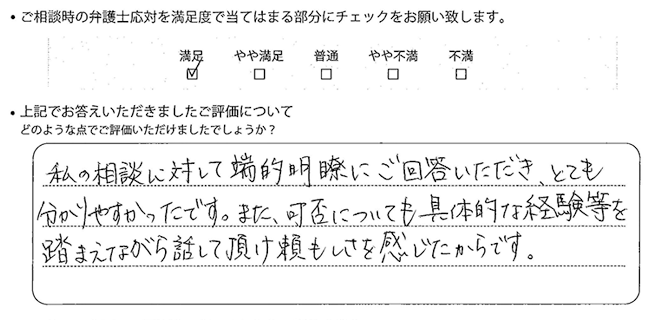 • ご相談時の弁護士応対を満足度で当てはまる部分にチェックをお願い致します。
満足 やや満足 普通 やや不満 不満
☑ □ □ □ □
• 上記でお答えいただきましたご評価について
どのような点でご評価いただけましたでしょうか？
私の相談に対して端的明瞭にご回答いただき、とても
分かりやすかったです。また、可否についても具体的な経験等を
踏まえながら話して頂け頼もしさを感じたからです。